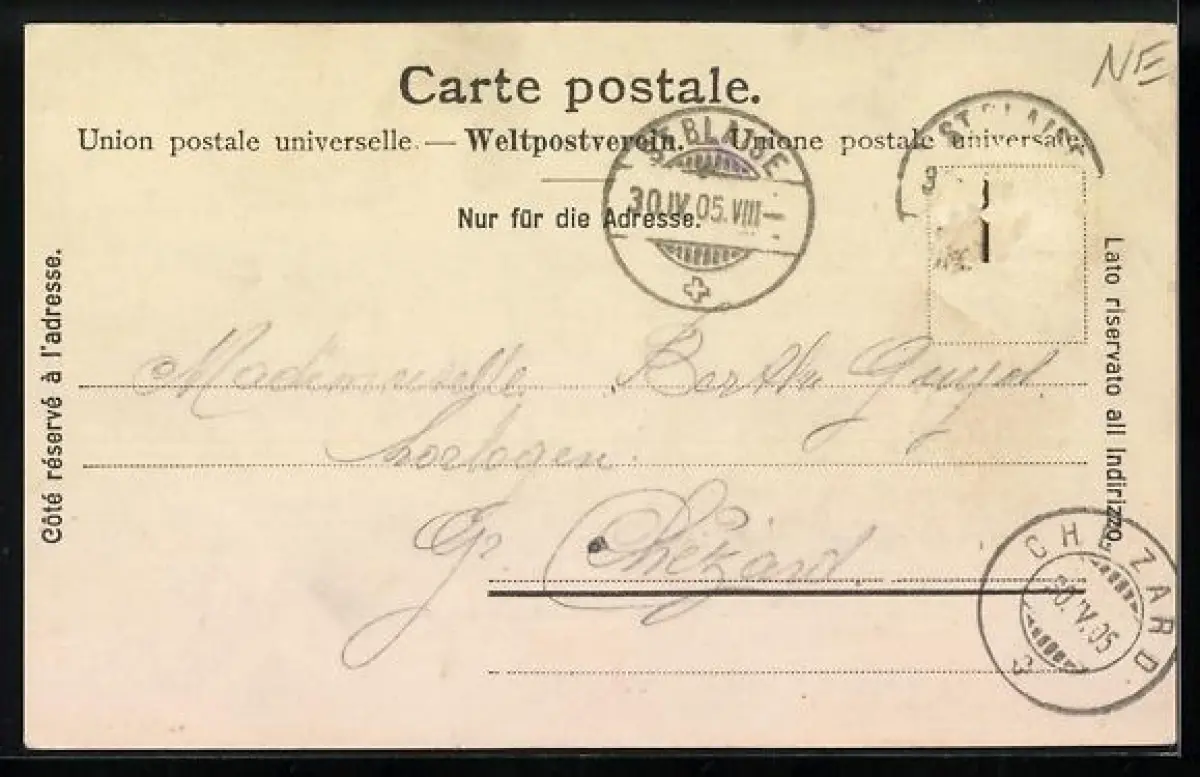 NE
Carte postale.
Union postale universelle. — Weltpostverein. — Unione postale universale.
Nur für die Adresse.
ST BLAISE
30.IV.05.VIII—
ST BLAISE
3
Côté réservé à l'adresse.
Lato riservato all Indirizzo.
Mademoiselle Berthe Guyot.
horloger.
Gr. Chézard.
CHÉZARD
30.IV.05